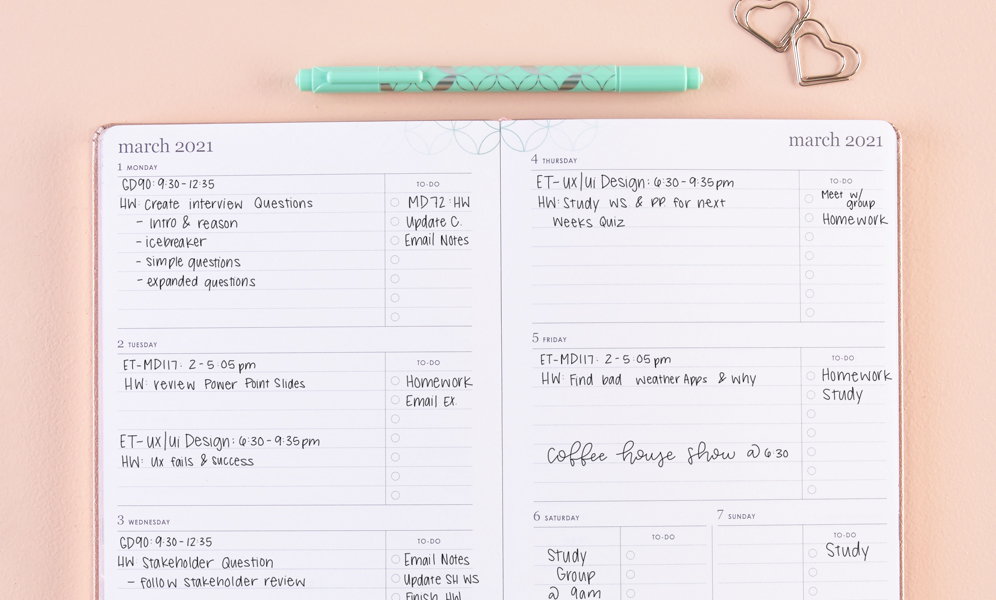 march 2021
1 MONDAY
GD90: 9:30-12:35
HW: Create interview Questions
- Intro & reason
- icebreaker
- simple questions
- expanded questions
TO-DO
MD72:HW
Update C.
Email Notes
2 TUESDAY
ET-MD117: 2-5:05pm
HW: review Power Point Slides
ET-ux/ui Design: 6:30-9:35pm
HW: Ux fails & success
TO-DO
Homework
Email Ex.
3 WEDNESDAY
GD90: 9:30-12:35
HW: Stakeholder Question
- follow stakeholder review
TO-DO
Email Notes
Update SH WS
Finish HW
march 2021
4 THURSDAY
ET-ux/ui Design: 6:30-9:35pm
HW: Study WS & PP for next
Weeks Quiz
TO-DO
Meet w/
group
Homework
5 FRIDAY
ET-MD117: 2-5:05pm
HW: Find bad weather Apps & why
coffee house show @ 6:30
TO-DO
Homework
Study
6 SATURDAY
Study
Group
@ 9am
TO-DO
7 SUNDAY
TO-DO
Study